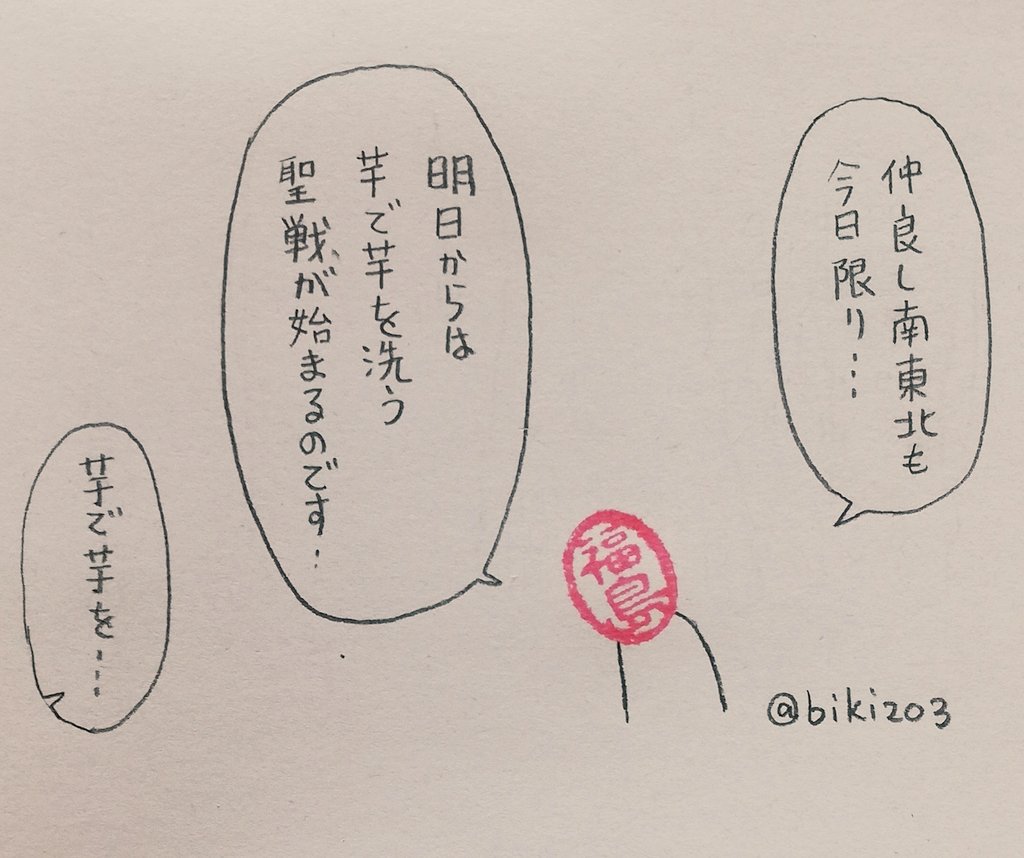 仲良し南東北も
今日限り…
明日からは
芋で芋を洗う
聖戦が始まるのです…
芋で芋を……
福島
@biki203